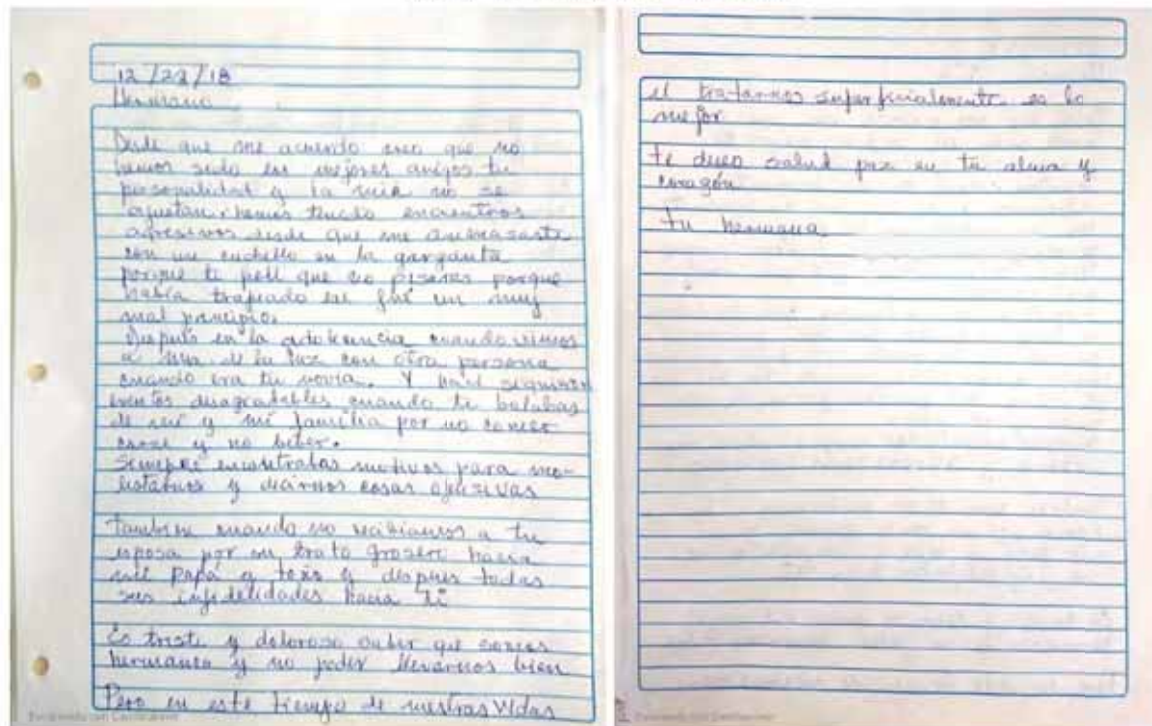 12/22/18
Hermano
Desde que me acuerdo creo que no
hemos sido los mejores amigos tu
personalidad y la mia no se
ajustan. hemos tenido encuentros
agresivos desde que me amenazaste
con un cuchillo en la garganta
porque te pedí que no pisaras porque
había trapeado ese fué un muy
mal principio.
Después en la adolescencia cuando vimos
a de la Luz con otra persona
cuando era tu novia. Y
eventos desagradables cuando te bulabas
de mí y mi familia por no comer
carne y no beber.
Siempre encontrabas motivos para mo-
lestarnos y decirnos cosas ofensivas
También cuando no recibiamos a tu
esposa por su trato grosero hacia
mi Papá y y despues todas
sus infidelidades hacia ti
Es triste y doloroso saber que somos
hermanos y no poder llevarnos bien
Pero en este tiempo de nuestras vidas
el tratarnos superficialmente es lo
mejor
te deseo salud paz en tu alma y
corazón
tu hermana.